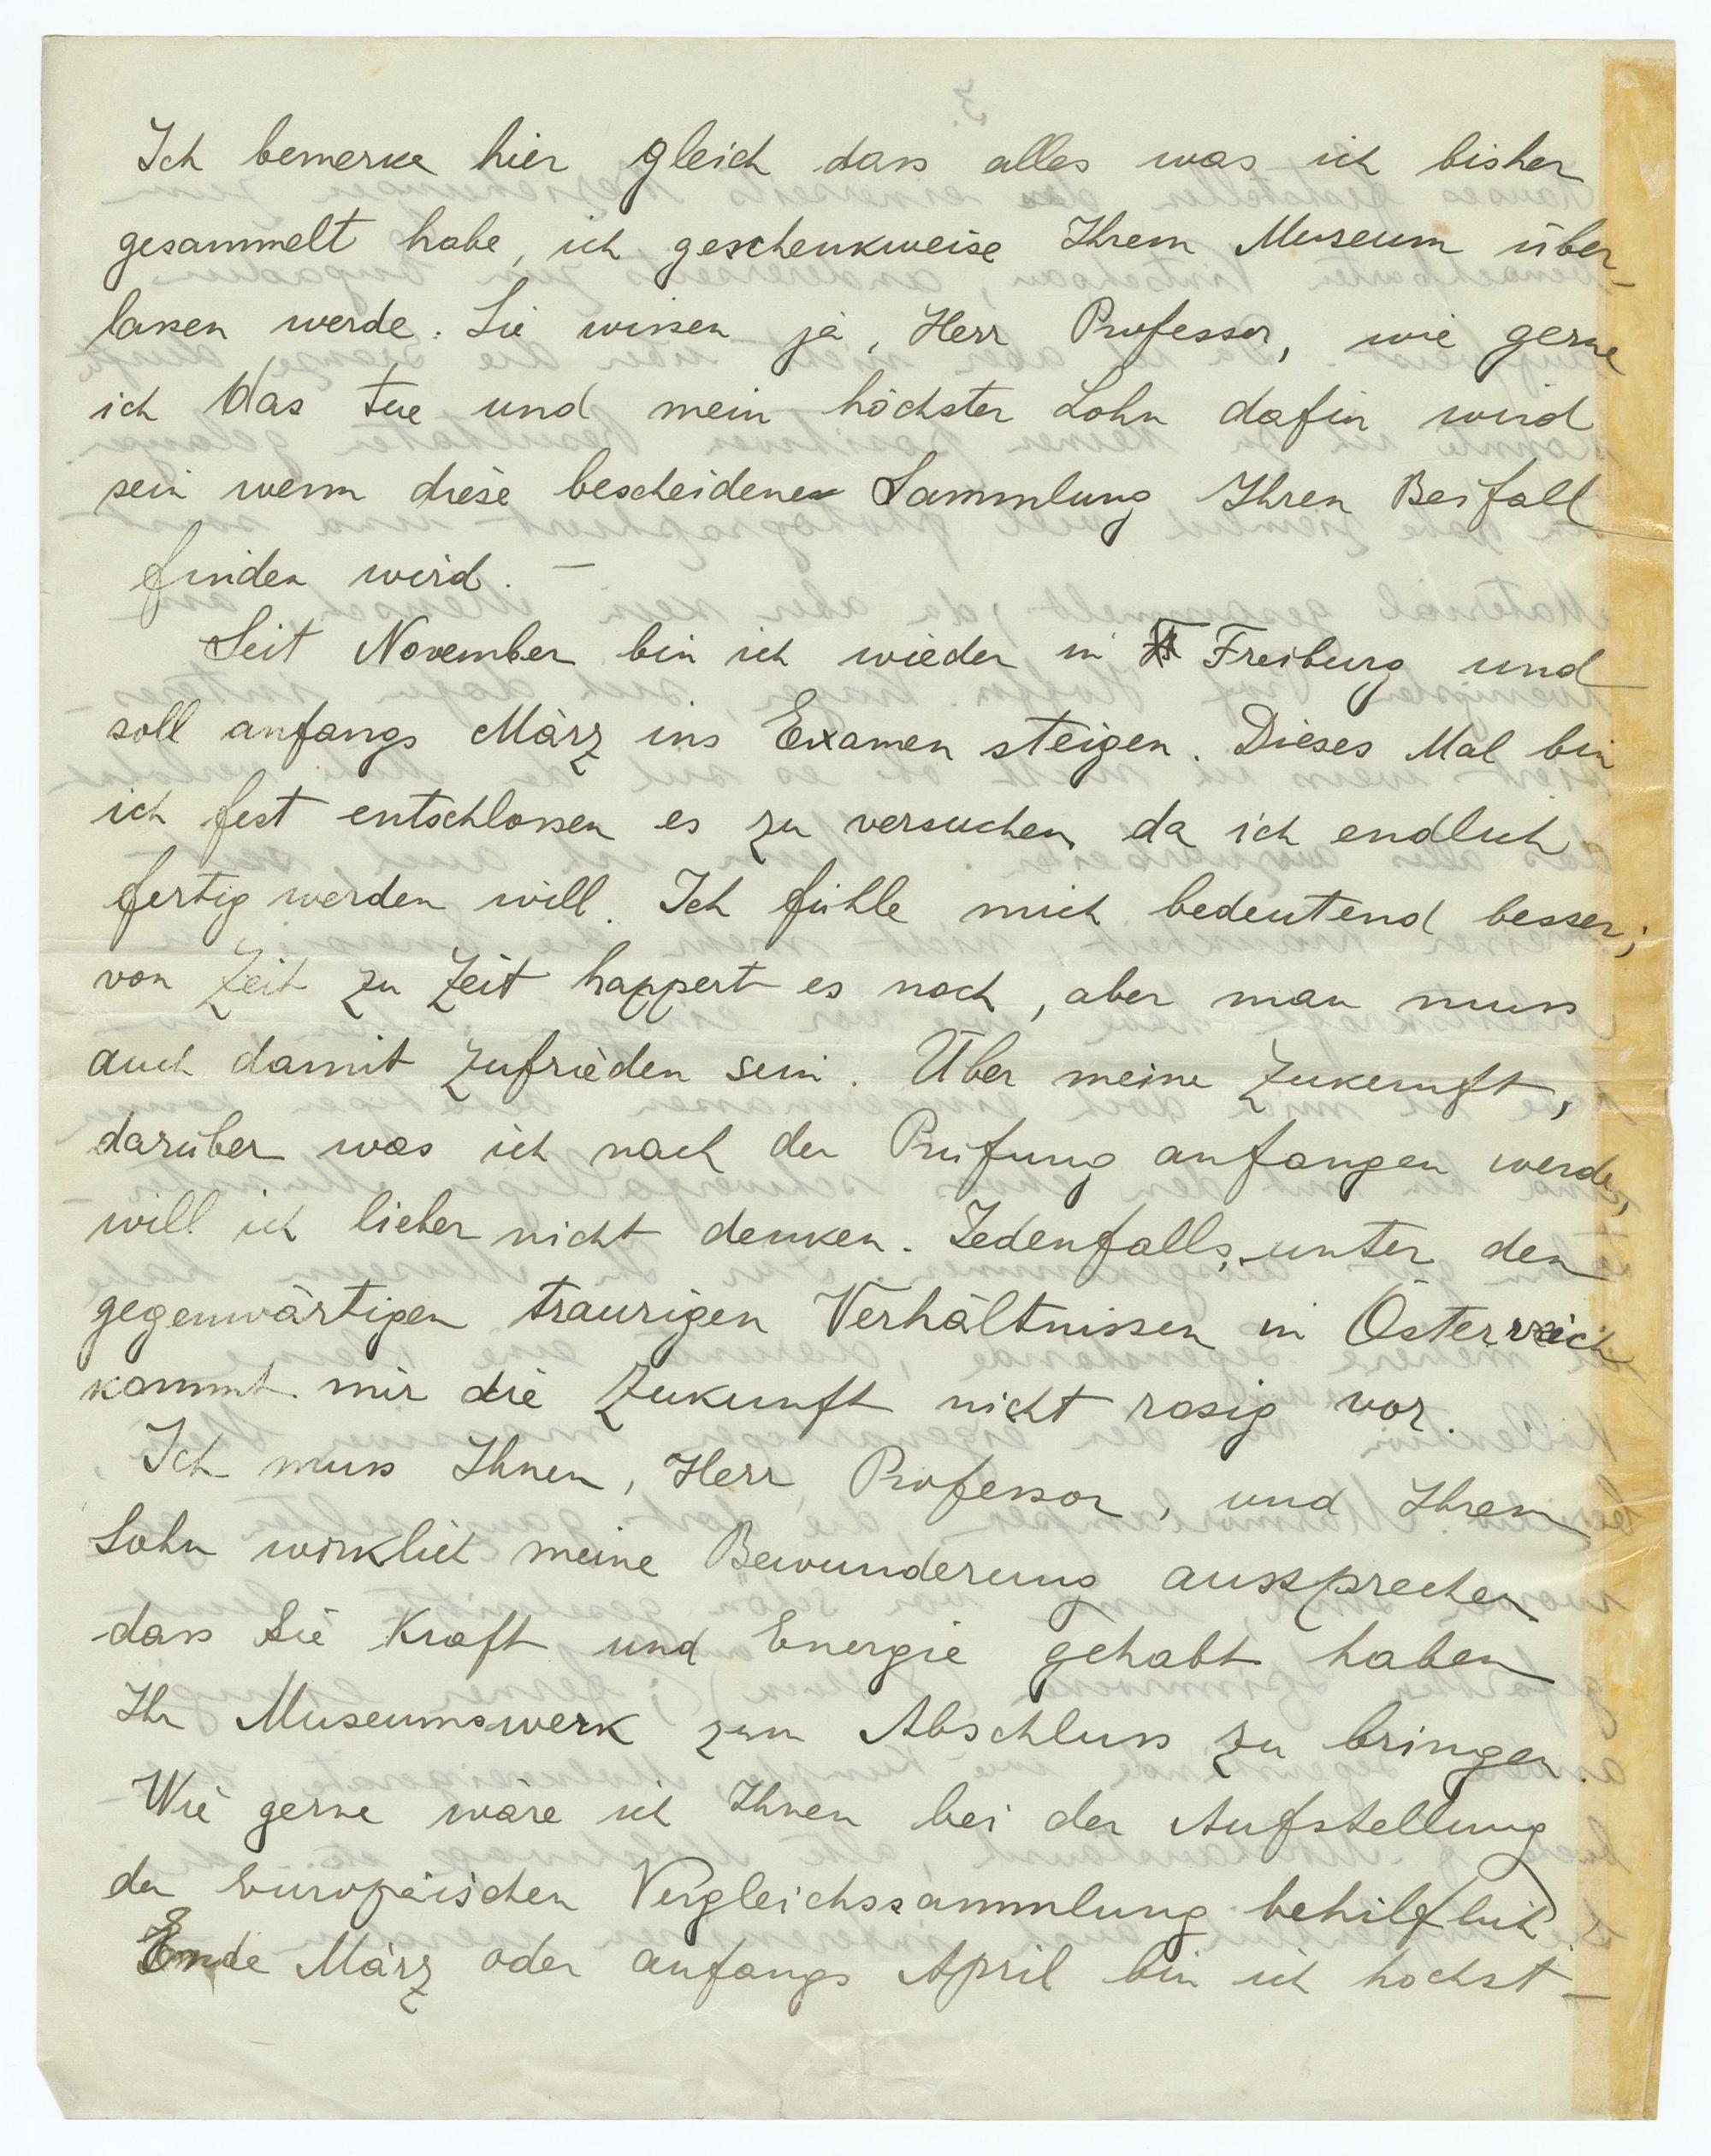 Ich bemerke hier gleich dass alles was ich bisher
gesammelt habe, ich geschenkweise Ihrem Museum über-
lassen werde. Sie wissen ja, Herr Professor, wie gerne
ich das tue und mein höchster Lohn dafür wird
sein wenn diese bescheidene Sammlung Ihren Beifall
finden wird. —
Seit November bin ich wieder in Freiburg und
soll anfangs März ins Examen steigen. Dieses Mal bin
ich fest entschlossen es zu versuchen da ich endlich
fertig werden will. Ich fühle mich bedeutend besser;
von Zeit zu Zeit happert es noch, aber man muss
auch damit zufrieden sein. Über meine Zukunft,
darüber was ich nach der Prüfung anfangen werde,
will ich lieber nicht denken. Jedenfalls, unter den
gegenwärtigen traurigen Verhältnissen in Österreich
kommt mir die Zukunft nicht rosig vor.
Ich muss Ihnen, Herr Professor, und Ihrem
Sohn wirklich meine Bewunderung aussprechen
dass Sie Kraft und Energie gehabt haben
Ihr Museumswerk zum Abschluss zu bringen.
Wie gerne wäre ich Ihnen bei der Aufstellung
der Europäischen Vergleichssammlung behilflich.
Ende März oder anfangs April bin ich höchst-